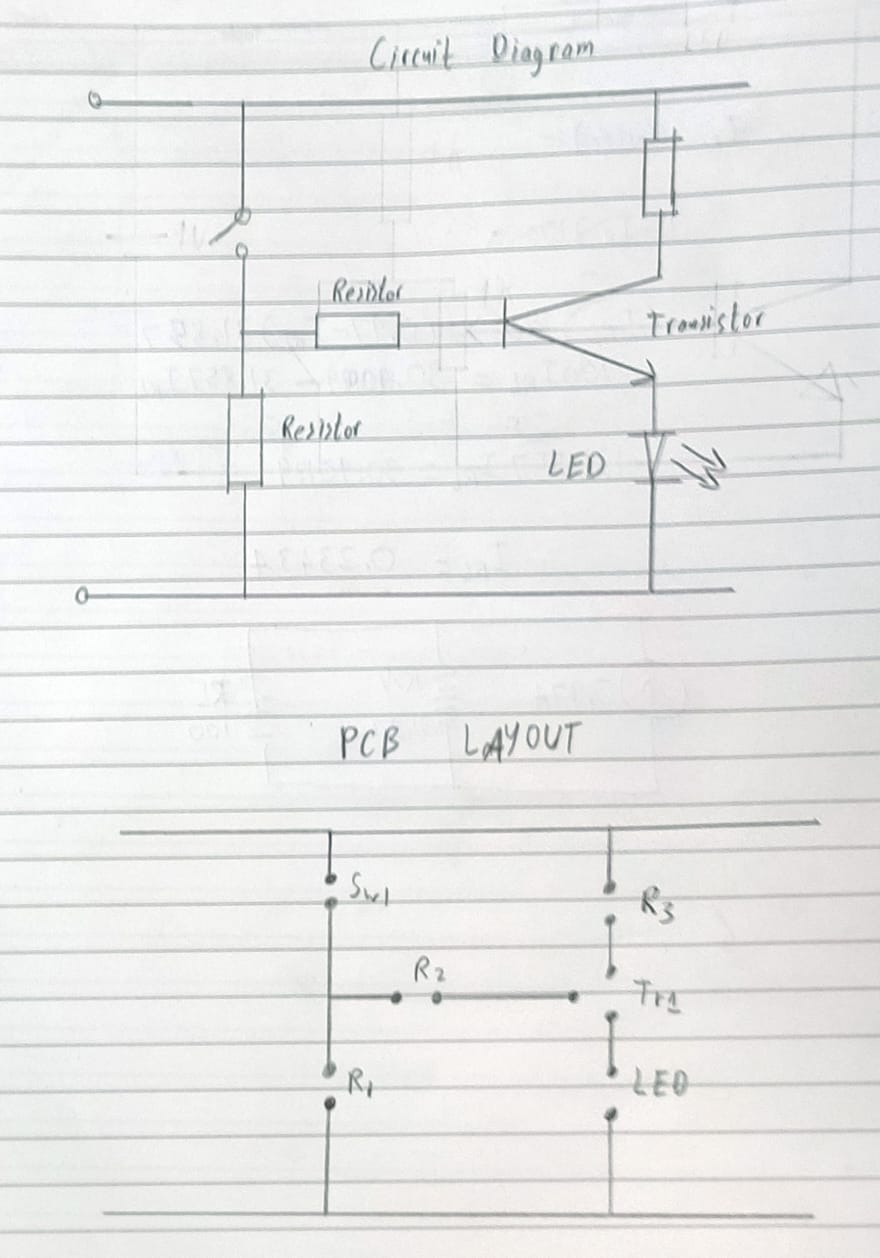 Circuit Diagram
Resistor
Transistor
Resistor
LED
PCB LAYOUT
Sw1
R3
R2
Tr1
R1
LED